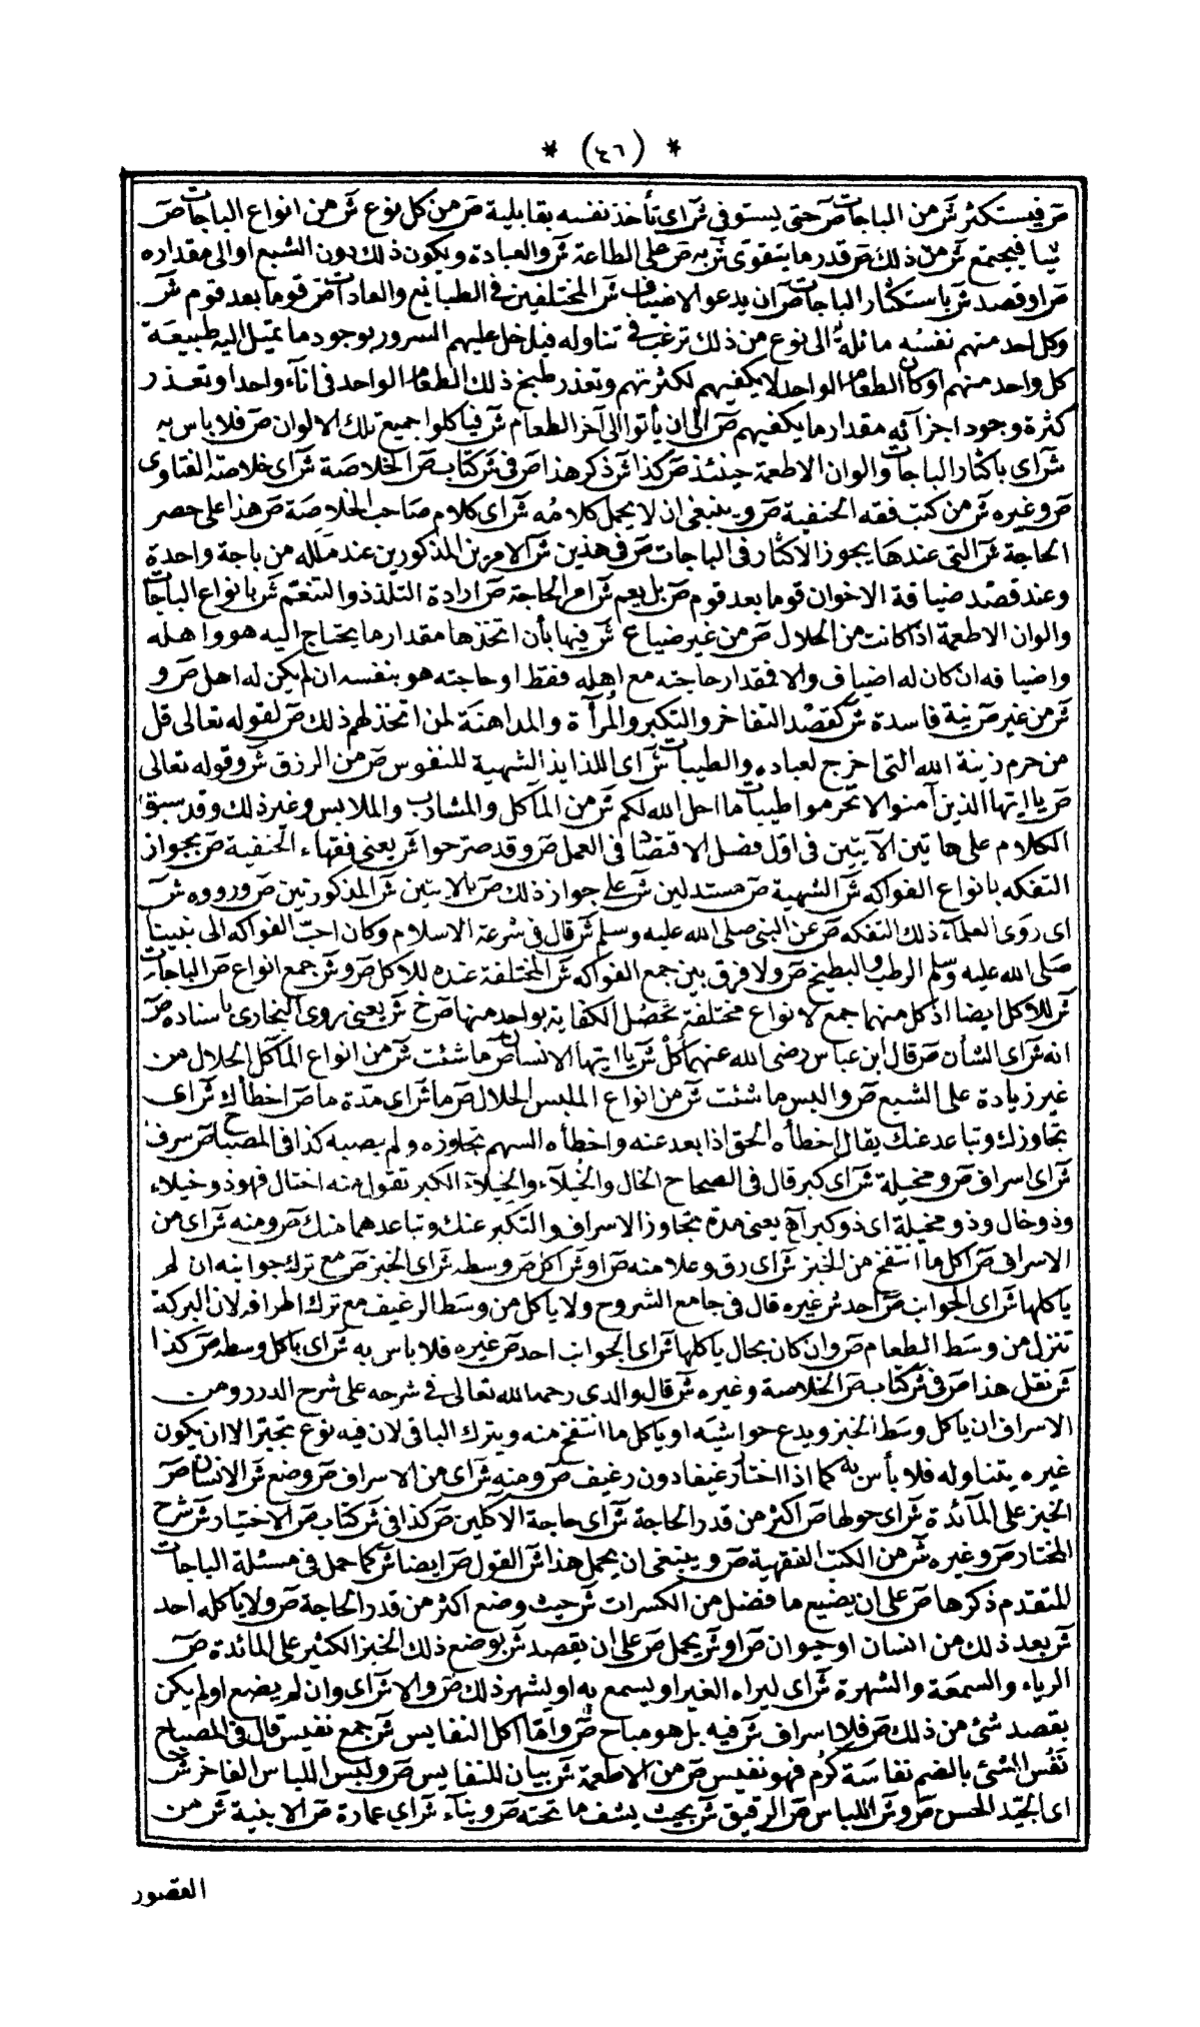 * (٤٦) *
صَ فيستكثر شَ من الباجات صَ حتى يستوفى شَ اى تأخذ نفسه بقابلية صَ من كل نوع شَ من انواع الباجات صَ
شيأ فيجتمع شَ من ذلك صَ قدر ما يتقوى شَ به صَ على الطاعة شَ والعبادة ويكون ذلك دون الشبع او الى مقداره
صَ او قصد شَ باستكثار الباجات صَ ان يدعو الاضياف شَ المختلفين فى الطبائع والعادات صَ قوما بعد قوم شَ
وكل احد منهم نفسه مائلة الى نوع من ذلك ترغب فى تناوله فيدخل عليهم السرور بوجود ما تميل اليه طبيعة
كل واحد منهم او كان الطعام الواحد لا يكفيهم لكثرتهم وتعذر طبخ ذلك الطعام الواحد فى اناء واحد او تعذر
كثرة وجود اجزآئه مقدار ما يكفيهم صَ الى ان يأتوا الى آخر الطعام شَ فياكلوا جميع تلك الالوان صَ فلا باس به
شَ اى باكثار الباجات والوان الاطعمة حينئذ صَ كذا شَ ذكر هذا صَ فى شَ كتاب صَ الخلاصة شَ اى خلاصة الفتاوى
صَ وغيره شَ من كتب فقه الحنفية صَ وينبغى ان لا يحمل كلامه شَ اى كلام صاحب الخلاصة صَ هذا على حصر
الحاجة شَ التى عندها يجوز الاكثار فى الباجات صَ فى هذين شَ الامرين المذكورين عند ملله من باجة واحدة
وعند قصد ضيافة الاخوان قوما بعد قوم صَ بل يعم شَ امر الحاجة صَ ارادة التلذذ والتنعم شَ بانواع الباجات
والوان الاطعمة اذا كانت من الحلال صَ من غير ضياع شَ فيها بأن اتخذها مقدار ما يحتاج اليه هو واهله
واضيافه ان كان له اضياف والا فقدار حاجته مع اهله فقط او حاجته هو بنفسه ان لم يكن له اهل صَ و
شَ من غير صَ نية فاسدة شَ كقصد التفاخر والتكبر والمرأة والمداهنة لمن اتخذ لهم ذلك صَ لقوله تعالى قل
من حرم زينة الله التى اخرج لعباده والطيبات شَ اى اللذايذ الشهية للنفوس صَ من الرزق شَ وقوله تعالى
صَ يا ايها الذين آمنوا لا تحرموا طيبات ما احل الله لكم شَ من المآكل والمشارب والملابس وغير ذلك وقد سبق
الكلام على هاتين الآيتين فى اول فصل الاقتصاد فى العمل صَ وقد صرحوا شَ يعنى فقهاء الحنفية صَ بجواز
التفكه بانواع الفواكه شَ الشهية صَ مستدلين شَ على جواز ذلك صَ بالايتين شَ المذكورتين صَ ورووه شَ
اى روى العلمآء ذلك التفكه صَ عن النبى صلى الله عليه وسلم شَ قال فى شرعة الاسلام وكان احب الفواكه الى نبينا
صلى الله عليه وسلم الرطب والبطيخ صَ ولا فرق بين جمع الفواكه شَ المختلفة عنده للاكل صَ و شَ جمع انواع صَ الباجات
شَ للاكل ايضا اذ كل منهما جمع لانواع مختلفة تحصل الكفاية بواحد منها صَ خ شَ يعنى روى البخارى باسناده صَ
انه شَ اى الشأن صَ قال ابن عباس رضى الله عنهما كل شَ يا ايها الانسان صَ ما شئت شَ من انواع المآكل الحلال من
غير زيادة على الشبع صَ والبس ما شئت شَ من انواع الملبس الحلال صَ ما شَ اى مدة ما صَ اخطأك شَ اى
تجاوزك وتباعد عنك يقال اخطأه الحق اذا بعد عنه واخطأه السهم تجاوزه ولم يصبه كذا فى المصباح صَ سرف
شَ اى اسراف صَ ومخيلة شَ اى كبر قال فى الصحاح الخال والخيلآء والخيلآء الكبر تقول منه اختال فهو ذو خيلاء
وذو خال وذو مخيلة اى ذو كبر اهـ يعنى مدة تجاوز الاسراف والتكبر عنك وتباعدهما منك صَ ومنه شَ اى من
الاسراف صَ اكل ما انتفخ من الخبز شَ اى رق وعلا منه صَ او شَ اكل صَ وسطه شَ اى الخبز صَ مع ترك جوانبه ان لم
ياكلها شَ اى الجوانب صَ احد شَ غيره قال فى جامع الشروح ولا ياكل من وسط الرغيف مع ترك اطرافه لان البركة
تنزل من وسط الطعام صَ وان كان بحال ياكلها شَ اى الجوانب احد صَ غيره فلا باس به شَ اى باكل وسطه صَ كذا
شَ نقل هذا صَ فى شَ كتاب صَ الخلاصة وغيره شَ قال والدى رحمه الله تعالى فى شرحه على شرح الدرر ومن
الاسراف ان ياكل وسط الخبز ويدع حواشيه او ياكل ما انتفخ منه ويترك الباقى لان فيه نوع تجبر الا ان يكون
غيره يتناوله فلا بأس به كما اذا اختار رغيفا دون رغيف صَ ومنه شَ اى من الاسراف صَ وضع شَ الانسان صَ
الخبز على المآئدة شَ اى حولها صَ اكثر من قدر الحاجة شَ اى حاجة الآكلين صَ كذا فى شَ كتاب صَ الاختيار شَ شرح
المختار صَ وغيره شَ من الكتب الفقهية صَ وينبغى ان يحمل هذا شَ القول صَ ايضا شَ كما حمل فى مسئلة الباجات
المتقدم ذكرها صَ على ان يضيع ما فضل من الكسرات شَ حيث وضع اكثر من قدر الحاجة صَ ولا ياكله احد
شَ بعد ذلك من انسان او حيوان صَ او شَ يحمل صَ على ان يقصد شَ بوضع ذلك الخبز الكثير على المائدة صَ
الرياء والسمعة والشهرة شَ اى ليراه الغير او يسمع به او ليشهر ذلك صَ والا شَ اى وان لم يضع او لم يكن
يقصد شئ من ذلك صَ فلا اسراف شَ فيه بل هو مباح صَ واما اكل النفايس شَ جمع نفيس قال فى المصباح
نفس الشئ بالضم نفاسة كرم فهو نفيس صَ من الاطعمة شَ بيان للنفايس صَ ولبس اللباس الفاخر شَ
اى الجيد الحسن صَ و شَ اللباس صَ الرقيق شَ بحيث يشف ما تحته صَ وبنآء شَ اي عمارة صَ الابنية شَ من
القصور